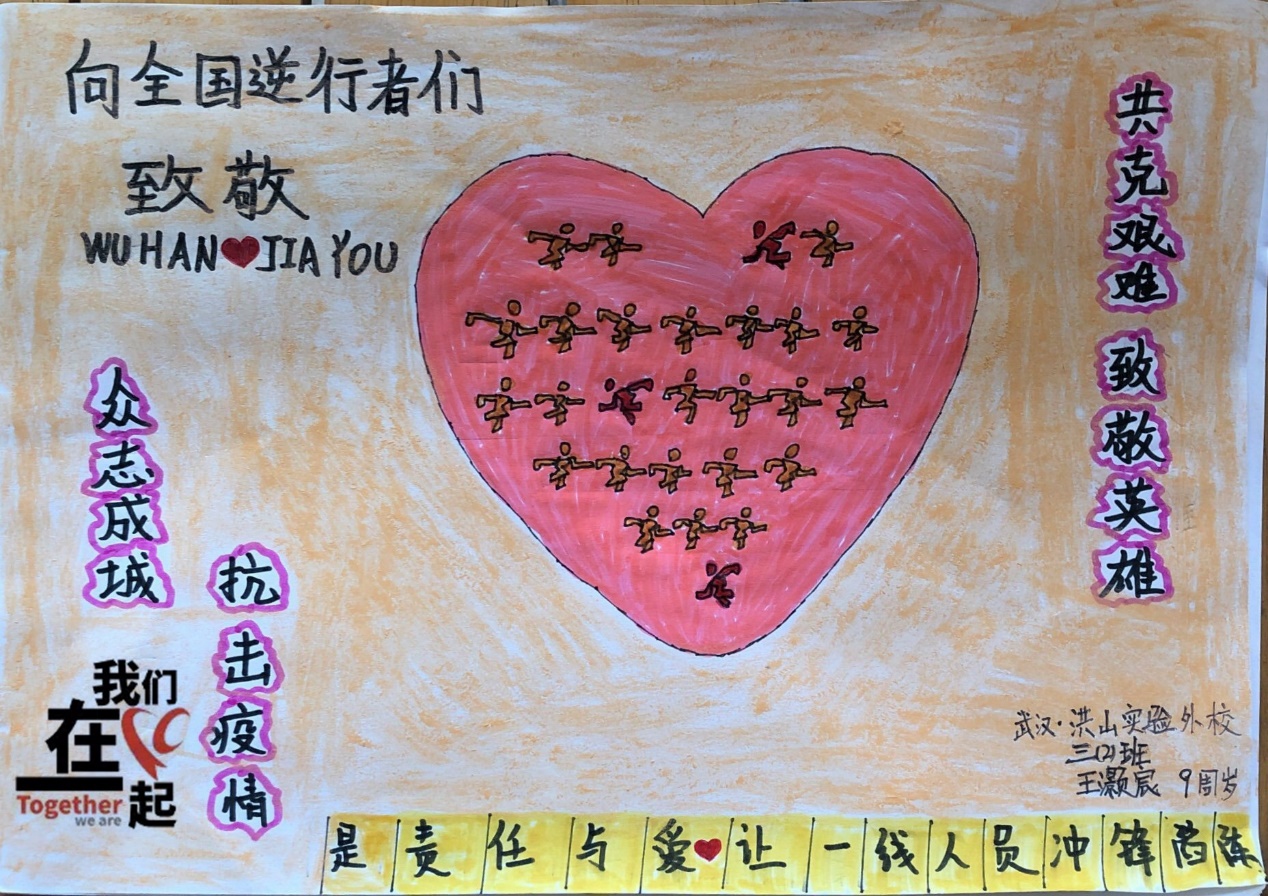 向全国逆行者们
致敬
WUHAN❤JIAYOU
众志成城
抗击疫情
共克艰难 致敬英雄
我们
在一起
Together
we are
武汉·洪山实验外校
三(2)班
王灏宸 9周岁
是责任与爱❤让一线人员冲锋陷阵